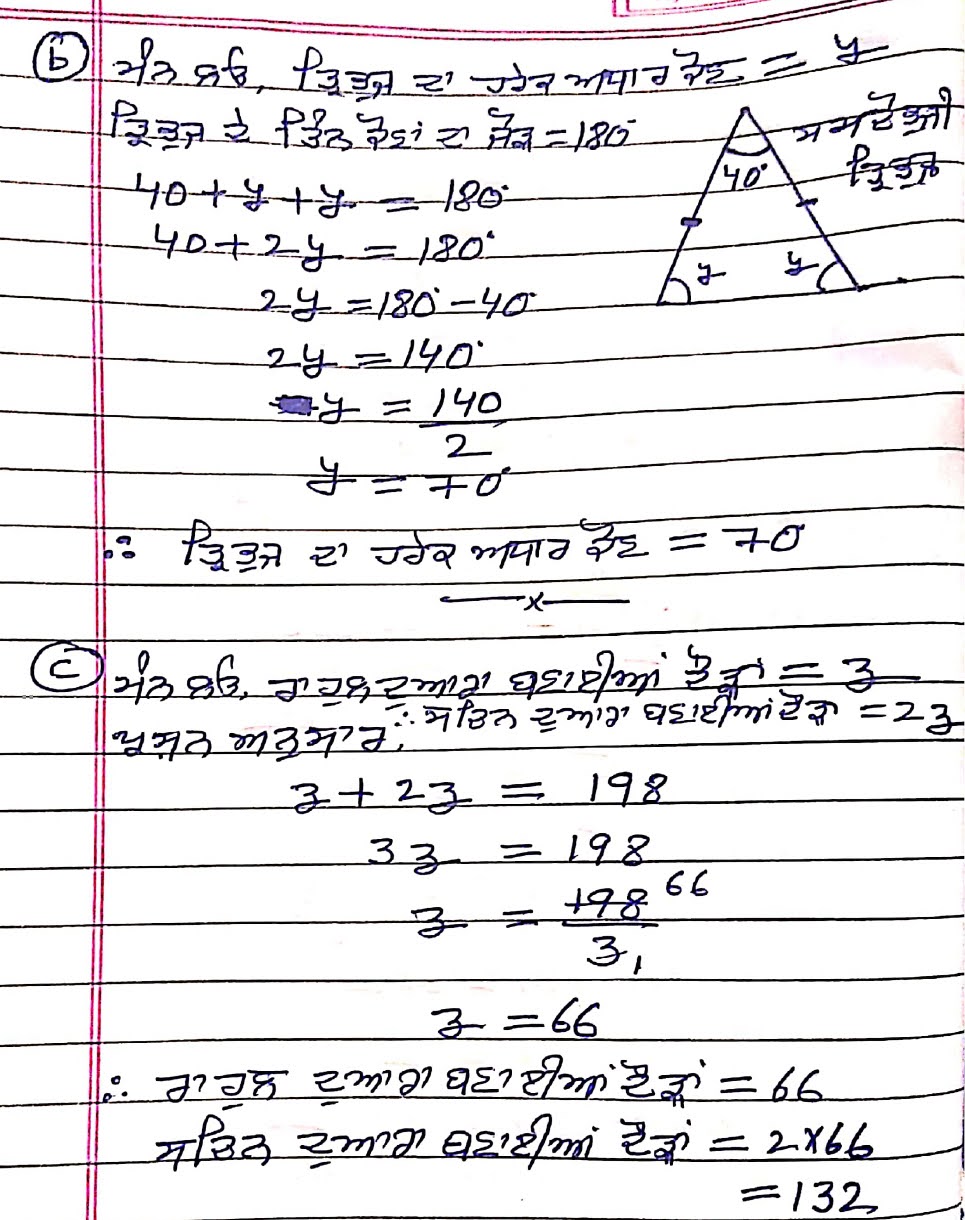 (b) ਮੰਨ ਲਓ, ਤ੍ਰਿਭੁਜ ਦਾ ਹਰੇਕ ਅਧਾਰ ਕੋਣ = y
ਤ੍ਰਿਭੁਜ ਦੇ ਤਿੰਨ ਕੋਣਾਂ ਦਾ ਜੋੜ = 180°
ਸਮਦੋਭੁਜੀ
ਤ੍ਰਿਭੁਜ
40°
y y
40 + y + y = 180°
40 + 2y = 180°
2y = 180° - 40°
2y = 140°
y = 140
2
y = 70°
∴ ਤ੍ਰਿਭੁਜ ਦਾ ਹਰੇਕ ਅਧਾਰ ਕੋਣ = 70°
—x—
(c) ਮੰਨ ਲਓ, ਰਾਹੁਲ ਦੁਆਰਾ ਬਣਾਈਆਂ ਦੌੜਾਂ = z
∴ ਸਚਿਨ ਦੁਆਰਾ ਬਣਾਈਆਂ ਦੌੜਾਂ = 2z
ਪ੍ਰਸ਼ਨ ਅਨੁਸਾਰ,
z + 2z = 198
3z = 198
z = 198 66
3 1
z = 66
∴ ਰਾਹੁਲ ਦੁਆਰਾ ਬਣਾਈਆਂ ਦੌੜਾਂ = 66
ਸਚਿਨ ਦੁਆਰਾ ਬਣਾਈਆਂ ਦੌੜਾਂ = 2x66
= 132